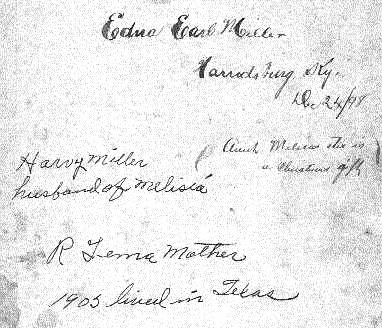 Edna Earl Miller
Harrodsburg Ky.
Dec 24/98
Aunt Melissa this is
a Christmas gift
Harvy Miller
husband of Melisia
R Lema Mother
1903 lived in Texas